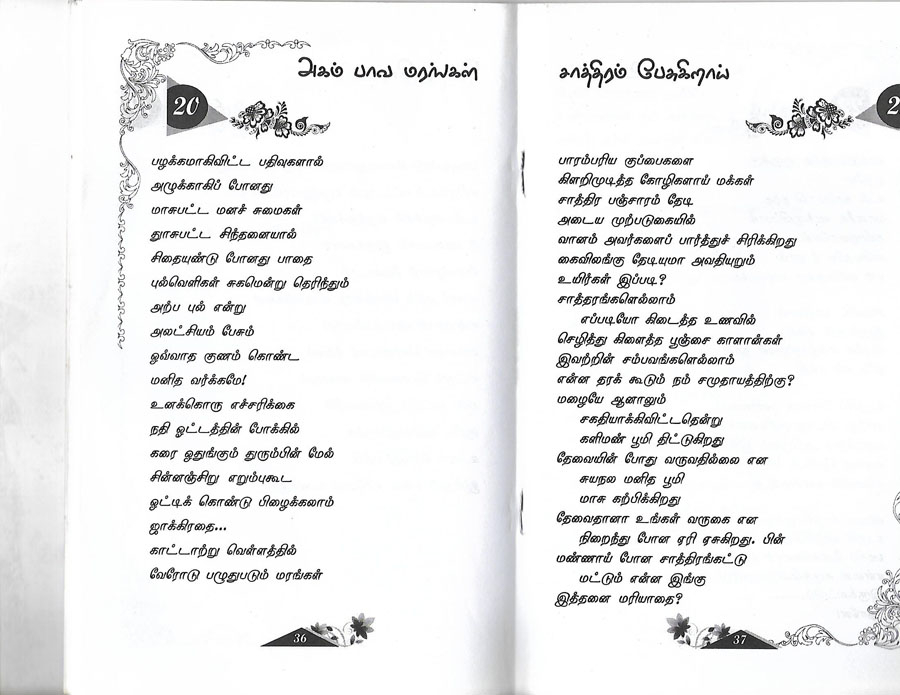 அகம் பாவ மரங்கள்
20
பழக்கமாகிவிட்ட பதிவுகளால்
அழுக்காகிப் போனது
மாசுபட்ட மனச் சுமைகள்
தூசுபட்ட சிந்தனையால்
சிதையுண்டு போனது பாதை
புல்வெளிகள் சுகமென்று தெரிந்தும்
அற்ப புல் என்று
அலட்சியம் பேசும்
ஒவ்வாத குணம் கொண்ட
மனித வர்க்கமே!
உனக்கொரு எச்சரிக்கை
நதி ஓட்டத்தின் போக்கில்
கரை ஒதுங்கும் துரும்பின் மேல்
சின்னஞ்சிறு எறும்புகூட
ஒட்டிக் கொண்டு பிழைக்கலாம்
ஜாக்கிரதை...
காட்டாற்று வெள்ளத்தில்
வேரோடு பழுதுபடும் மரங்கள்
36
சாத்திரம் பேசுகிறாய்
பாரம்பரிய குப்பைகளை
கிளறிமுடித்த கோழிகளாய் மக்கள்
சாத்திர பஞ்சாரம் தேடி
அடைய முற்படுகையில்
வானம் அவர்களைப் பார்த்துச் சிரிக்கிறது
கைவிலங்கு தேடியுமா அவதியுறும்
உயிர்கள் இப்படி?
சாத்தரங்களெல்லாம்
எப்படியோ கிடைத்த உணவில்
செழித்து கிளைத்த பூஞ்சை காளான்கள்
இவற்றின் சம்பவங்களெல்லாம்
என்ன தரக் கூடும் நம் சமுதாயத்திற்கு?
மழையே ஆனாலும்
சகதியாக்கிவிட்டதென்று
களிமண் பூமி திட்டுகிறது
தேவையின் போது வருவதில்லை என
சுயநல மனித பூமி
மாசு கற்பிக்கிறது
தேவைதானா உங்கள் வருகை என
நிறைந்து போன ஏரி ஏசுகிறது. பின்
மண்ணாய் போன சாத்திரங்கட்டு
மட்டும் என்ன இங்கு
இத்தனை மரியாதை?
37